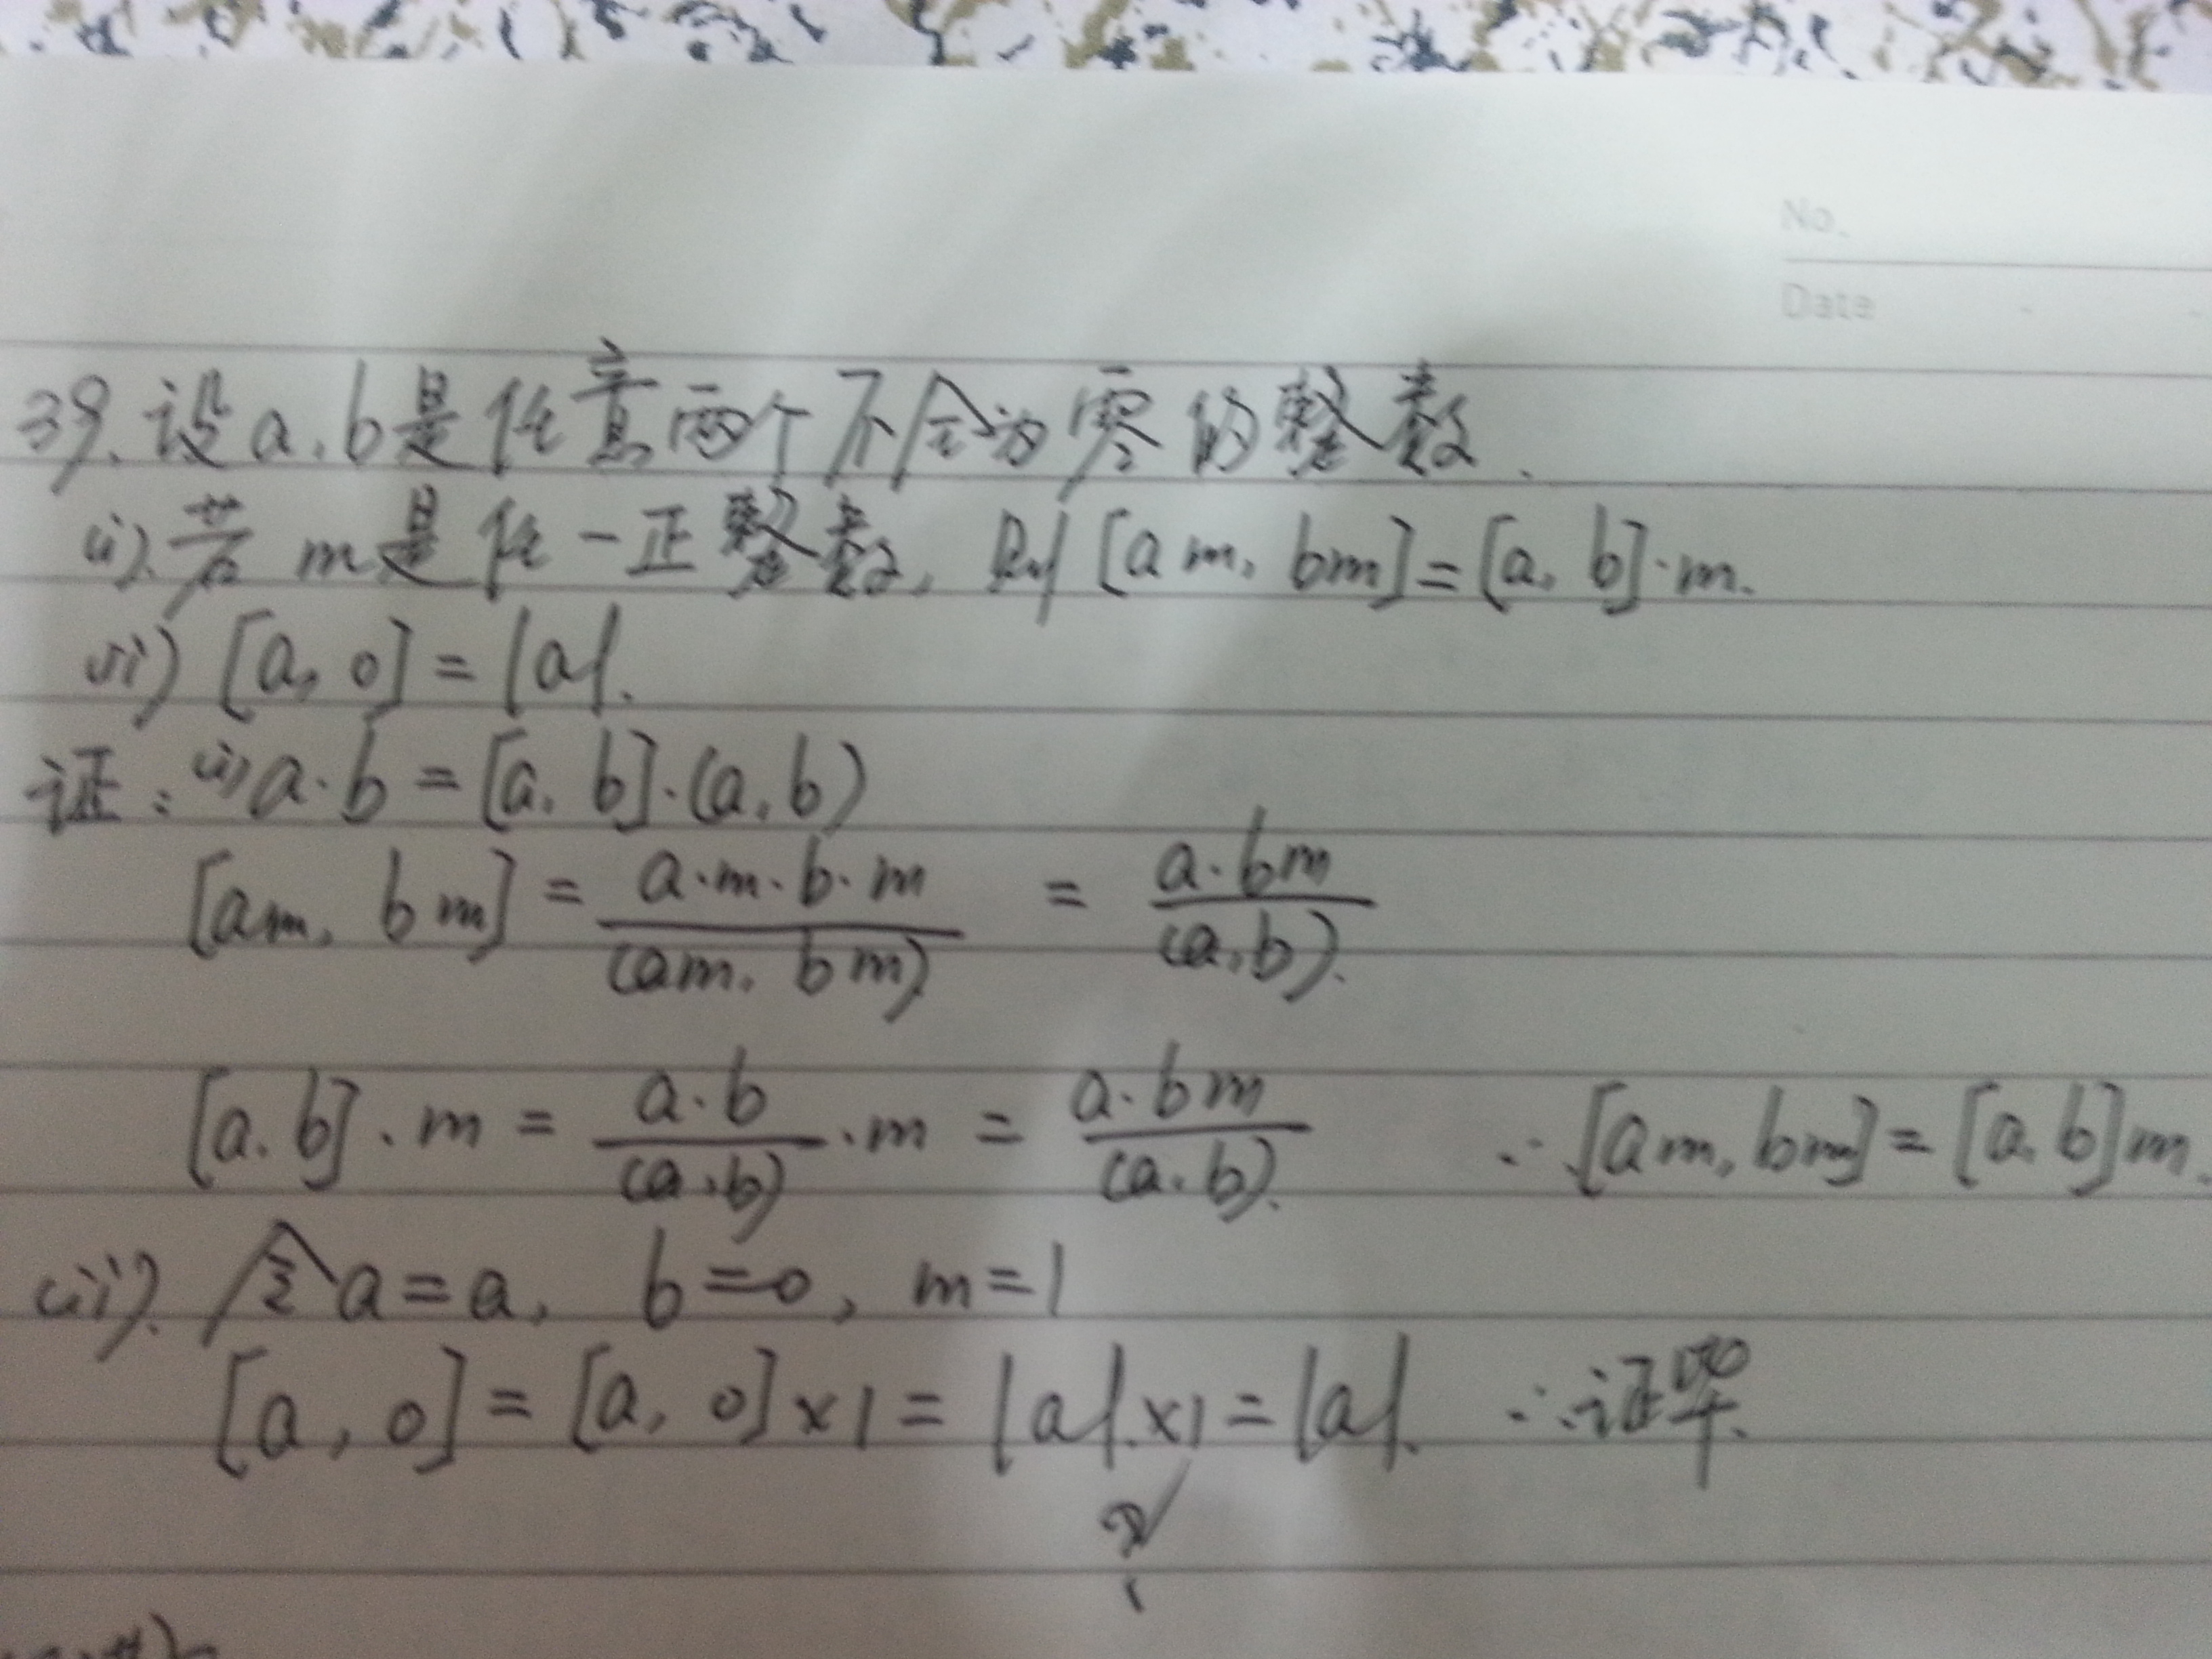 No.
Date
39. 设a.b是任意两个不全为零的整数.
(i). 若m是任一正整数, 则[am, bm]=[a, b]·m.
(ii) [a, 0]=|a|.
证: (i) a·b=[a, b]·(a, b)
[am, bm] = \frac{a·m·b·m}{(am, bm)} = \frac{a·bm}{(a, b)}.
[a.b]·m = \frac{a·b}{(a.b)}·m = \frac{a·bm}{(a.b)}. ∴[am, bm]=[a.b]m.
(ii). 令a=a, b=0, m=1
[a, 0]=[a, 0]×1=|a|×1=|a|. ∴证毕.